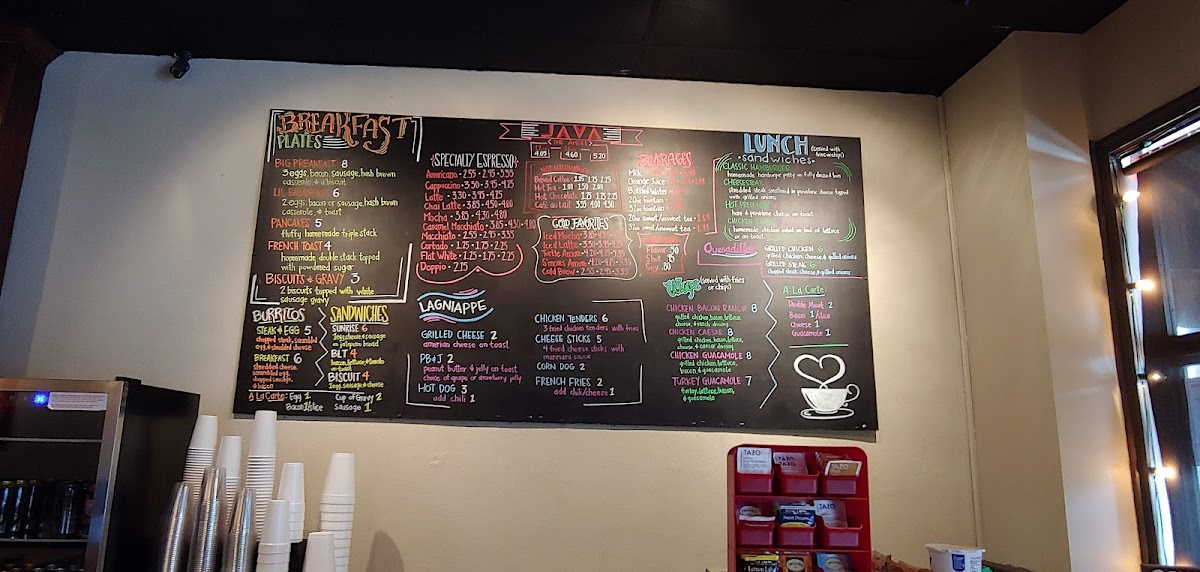 BREAKFAST
PLATES
BIG BREAKFAST 8
3 eggs, bacon, sausage, hash brown
casserole, & a biscuit
LIL BREAKFAST 6
2 eggs, bacon or sausage, hash brown
casserole, & toast
PANCAKES 5
fluffy homemade triple stack
FRENCH TOAST 4
homemade double stack topped
with powdered sugar
BISCUITS & GRAVY 3
2 biscuits topped with white
sausage gravy
BURRITOS
STEAK & EGG 5
chopped steak, scrambled
egg, & shredded cheese
BREAKFAST 6
shredded cheese,
scrambled egg,
chopped sausage,
& bacon
SANDWICHES
SUNRISE 6
egg, cheese, & sausage
on jalapeno bread
BLT 4
bacon, lettuce,
& tomato
on toast
BISCUIT 4
egg, sausage, & cheese
A La Carte: Egg 1 Cup of Gravy 2
Bacon 1/slice Sausage 1
SPECIALTY ESPRESSO
Americano - 2.55 - 2.95 - 3.35
Cappuccino - 3.30 - 3.75 - 4.25
Latte - 3.30 - 3.75 - 4.25
Chai Latte - 3.85 - 4.50 - 4.80
Mocha - 3.85 - 4.30 - 4.80
Caramel Macchiato - 3.85 - 4.30 - 4.80
Macchiato - 2.55 - 2.95 - 3.35
Cortado - 1.25 - 1.75 - 2.25
Flat White - 1.25 - 1.75 - 2.25
Doppio - 2.75
JAVA
THE AMORE
4.05 4.60 5.20
Brewed Coffee 1.75 1.75 2.25
Hot Tea 1.00 1.50 2.00
Hot Chocolate 1.25 1.75 2.25
Café au Lait 3.55 4.00 4.50
COLD FAVORITES
Iced Mocha
Iced Latte
Turtle Amore
S'mores Amore
Cold Brew - 2.55 - 2.95 - 3.35
BEVERAGES
Milk
Orange Juice
Bottled Water
20oz fountain
32oz fountain
20oz sweet/unsweet tea
32oz sweet/unsweet tea
Flavor .90
Shot .95
Soy .80
LAGNIAPPE
GRILLED CHEESE 2
american cheese on toast
PB & J 2
peanut butter & jelly on toast
choice of grape or strawberry jelly
HOT DOG 3
add chili 1
CHICKEN TENDERS 6
3 fried chicken tenders with fries
CHEESE STICKS 5
4 fried cheese sticks with
marinara sauce
CORN DOG 2
FRENCH FRIES 2
add chili/cheese 1
LUNCH (served with fries or chips)
sandwiches
CLASSIC HAMBURGER
homemade hamburger patty on fully dressed bun
CHEESESTEAK
shredded steak smothered in provolone cheese topped
with grilled onions
HOT
ham & provolone cheese on toast
CHICKEN
homemade chicken salad on bed of lettuce
or on toast
Quesadilla
GRILLED CHICKEN 6
grilled chicken, cheese, & grilled onions
GRILLED STEAK 6
chopped steak, cheese, & grilled onions
Wraps (served with fries
or chips)
CHICKEN BACON RANCH 8
grilled chicken, bacon, lettuce,
cheese, & ranch dressing
CHICKEN CAESAR 8
grilled chicken, bacon, lettuce,
cheese, & caesar dressing
CHICKEN GUACAMOLE 8
grilled chicken, lettuce,
bacon, & guacamole
TURKEY GUACAMOLE 7
turkey, lettuce, bacon,
& guacamole
A La Carte:
Double Meat 2
Bacon 1/slice
Cheese 1
Guacamole 1
TAZO
TAZO
TAZO
TAZO